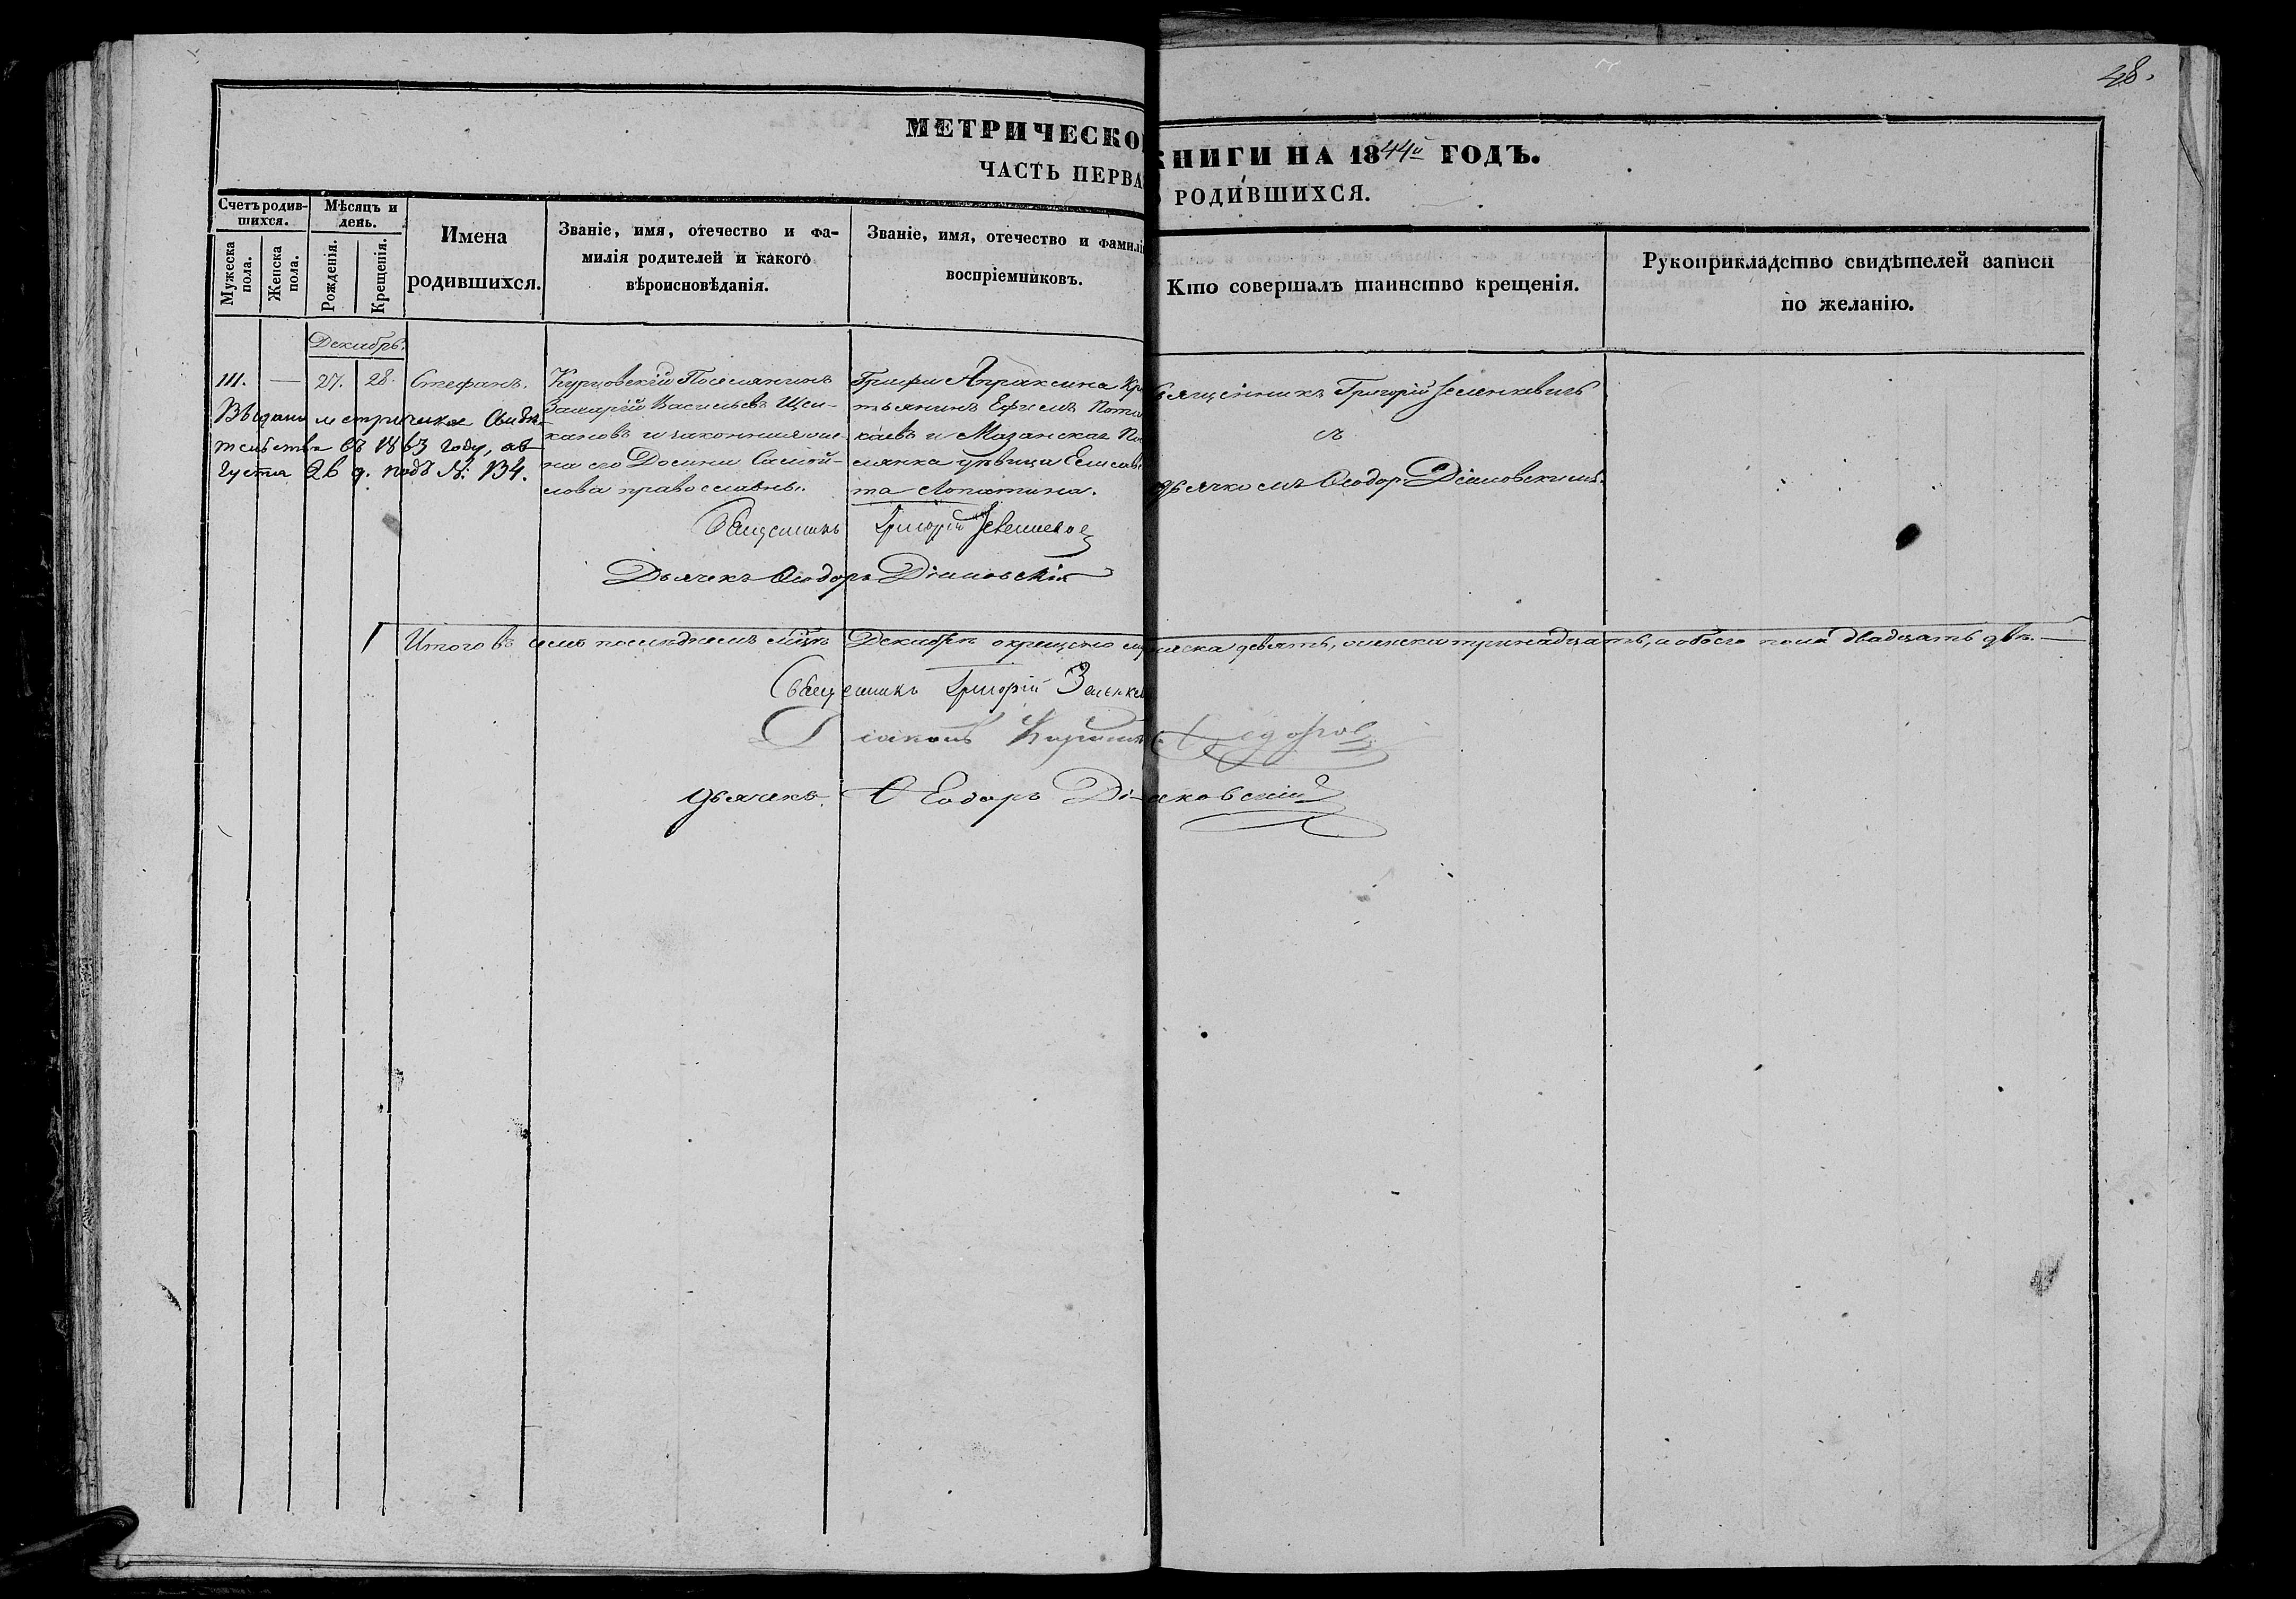 48.
МЕТРИЧЕСКО КНИГИ НА 1844й ГОДЪ.
ЧАСТЬ ПЕРВА РОДИВШИХСЯ.
Счетъ родив-
шихся.
Мѣсяцъ и
день.
Мужеска
пола.
Женска
пола.
Рожденія.
Крещенія.
Имена
родившихся.
Званіе, имя, отечество и фа-
милія родителей и какого
вѣроисповѣданія.
Званіе, имя, отечество и фамилі
воспріемниковъ.
Кто совершалъ таинство крещенія.
Рукоприкладство свидѣтелей записи
по желанію.
Декабрь.
111. — 27. 28. Стефанъ.
Выдано метрическое Свидѣ-
тельство въ 1863 году, ав-
густа 26 д. подъ №. 134.
Курцовскій Поселянинъ
Захарій Васильевъ Щел-
кановъ и законная же-
на его Домна Самой-
лова православны.
Графа Апраксина Кре
тьянинъ Ефимъ Пота
каевъ и Мазанская По
селянка дѣвица Елисаве
та Лопатина.
Священникъ Григорій Зеленкевичъ
съ
дьячкомъ Ѳеодор. Діаковскимъ.
Священникъ Григорій
Дьячекъ Ѳеодоръ Діаковскій
Итого въ семъ послѣднемъ м͠цѣ Декабрѣ окрещено мужеска девять, женска тринадцать, а обоего пола двадцать два. —
Священникъ Григорій Зеленкев
Діаконъ Ѳедоров
дьячекъ Ѳеодоръ Діаковскій